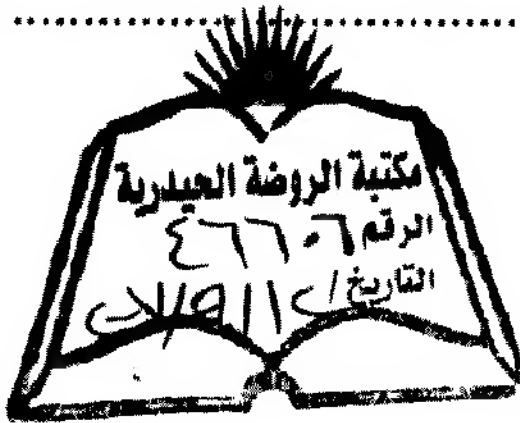 مكتبة الروضة الحيدرية
الرقم ٤٦٦٠٦
التاريخ